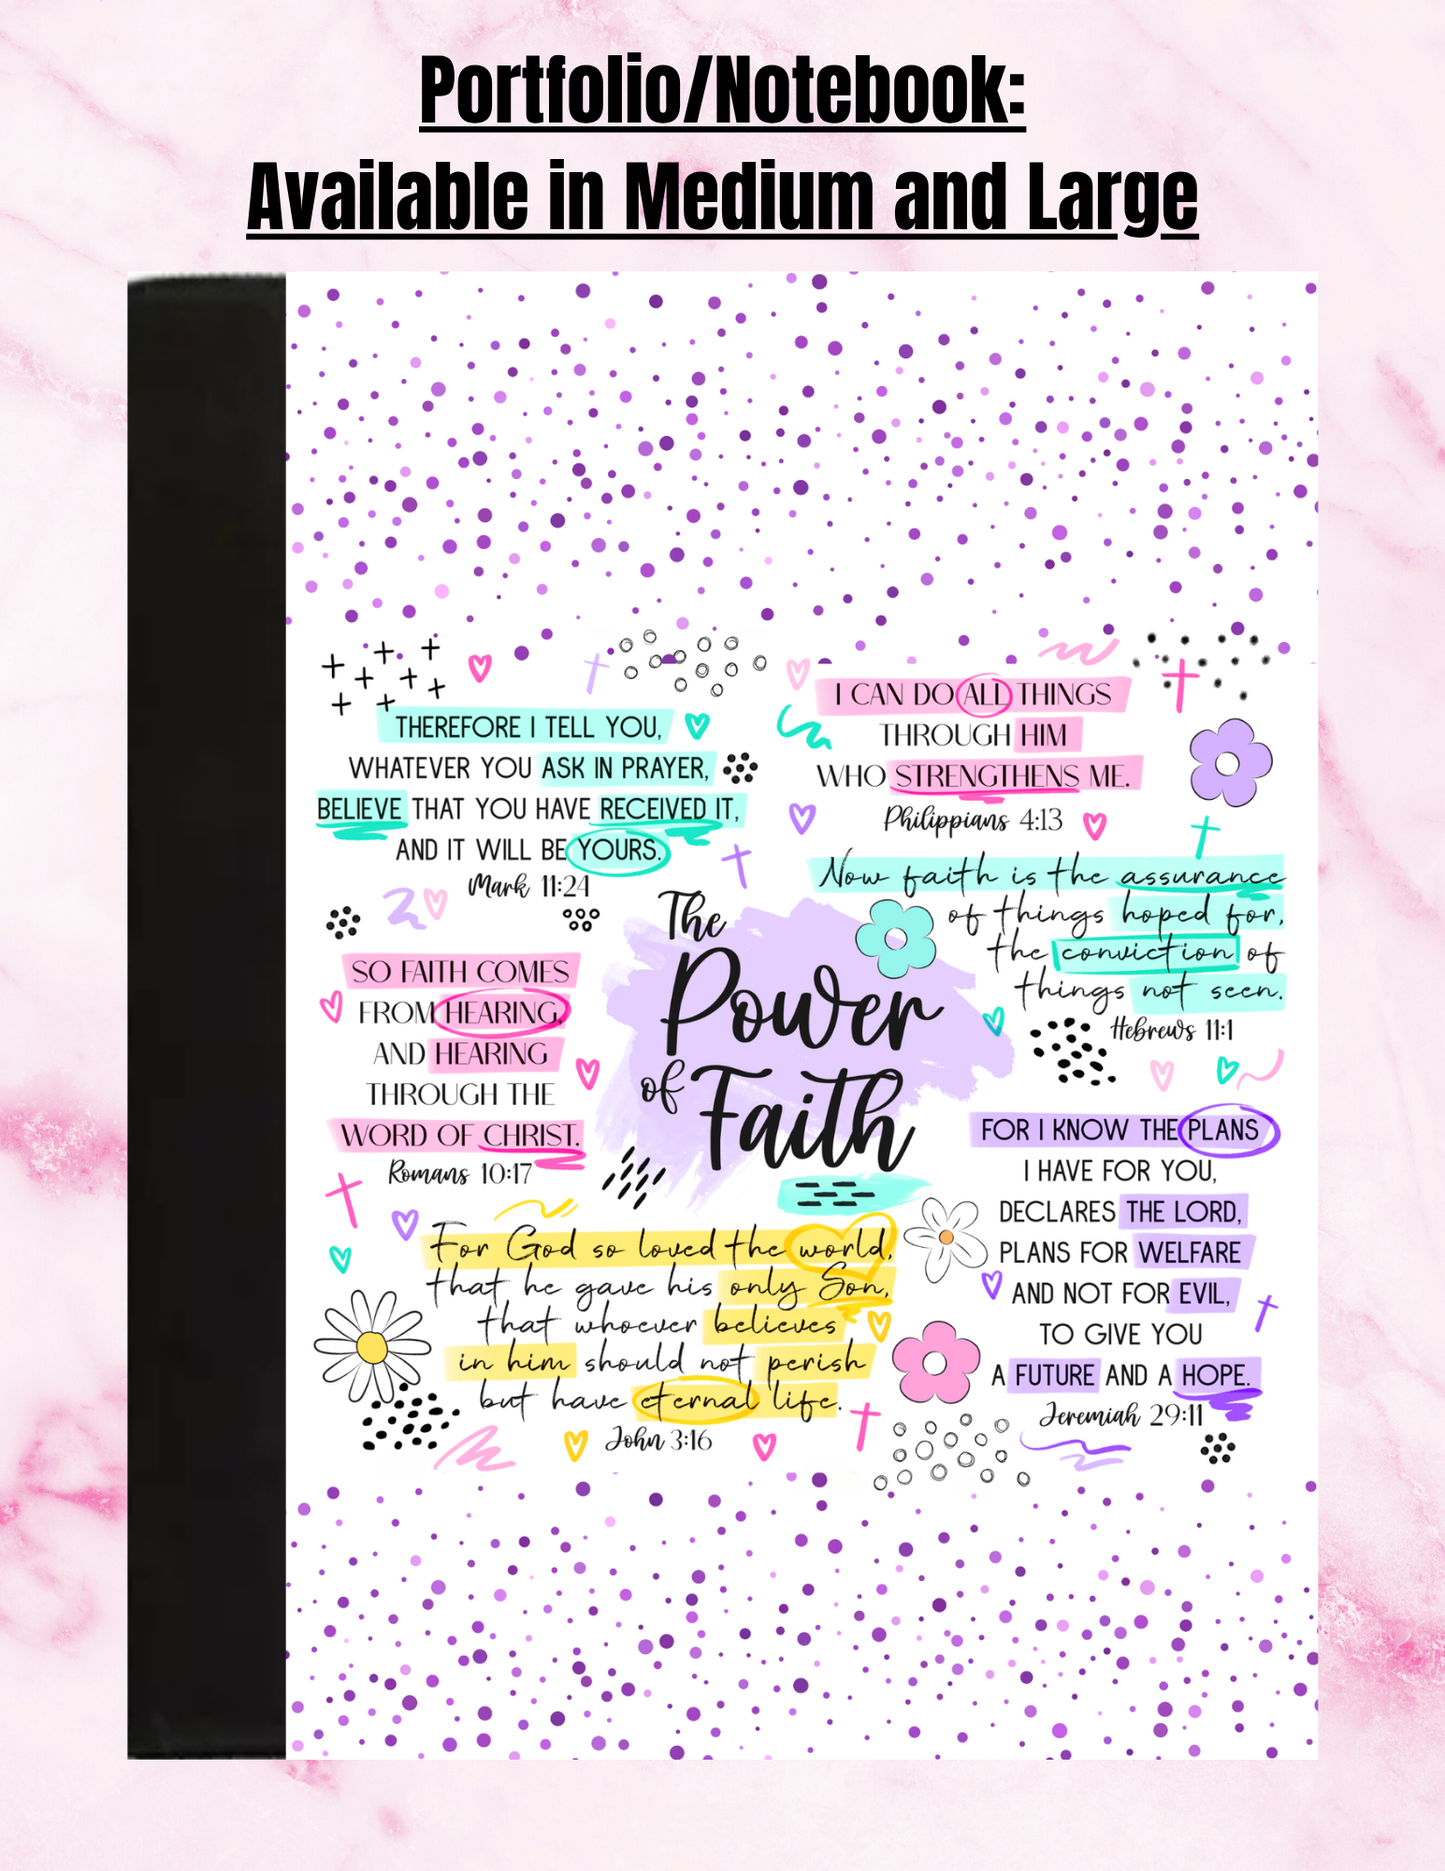 Portfolio/Notebook:
Available in Medium and Large
THEREFORE I TELL YOU,
WHATEVER YOU ASK IN PRAYER,
BELIEVE THAT YOU HAVE RECEIVED IT,
AND IT WILL BE YOURS.
Mark 11:24
I CAN DO ALL THINGS
THROUGH HIM
WHO STRENGTHENS ME.
Philippians 4:13
Now faith is the assurance
of things hoped for,
the conviction of
things not seen.
Hebrews 11:1
The
Power
of Faith
SO FAITH COMES
FROM HEARING,
AND HEARING
THROUGH THE
WORD OF CHRIST.
Romans 10:17
FOR I KNOW THE PLANS
I HAVE FOR YOU,
DECLARES THE LORD,
PLANS FOR WELFARE
AND NOT FOR EVIL,
TO GIVE YOU
A FUTURE AND A HOPE.
Jeremiah 29:11
For God so loved the world,
that he gave his only Son,
that whoever believes
in him should not perish
but have eternal life.
John 3:16